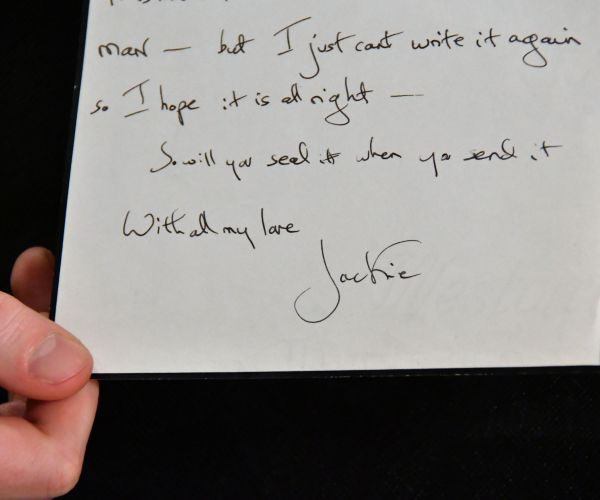 man — but I just cant write it again
so I hope it is all right —
So will you seal it when you send it
With all my love
Jackie